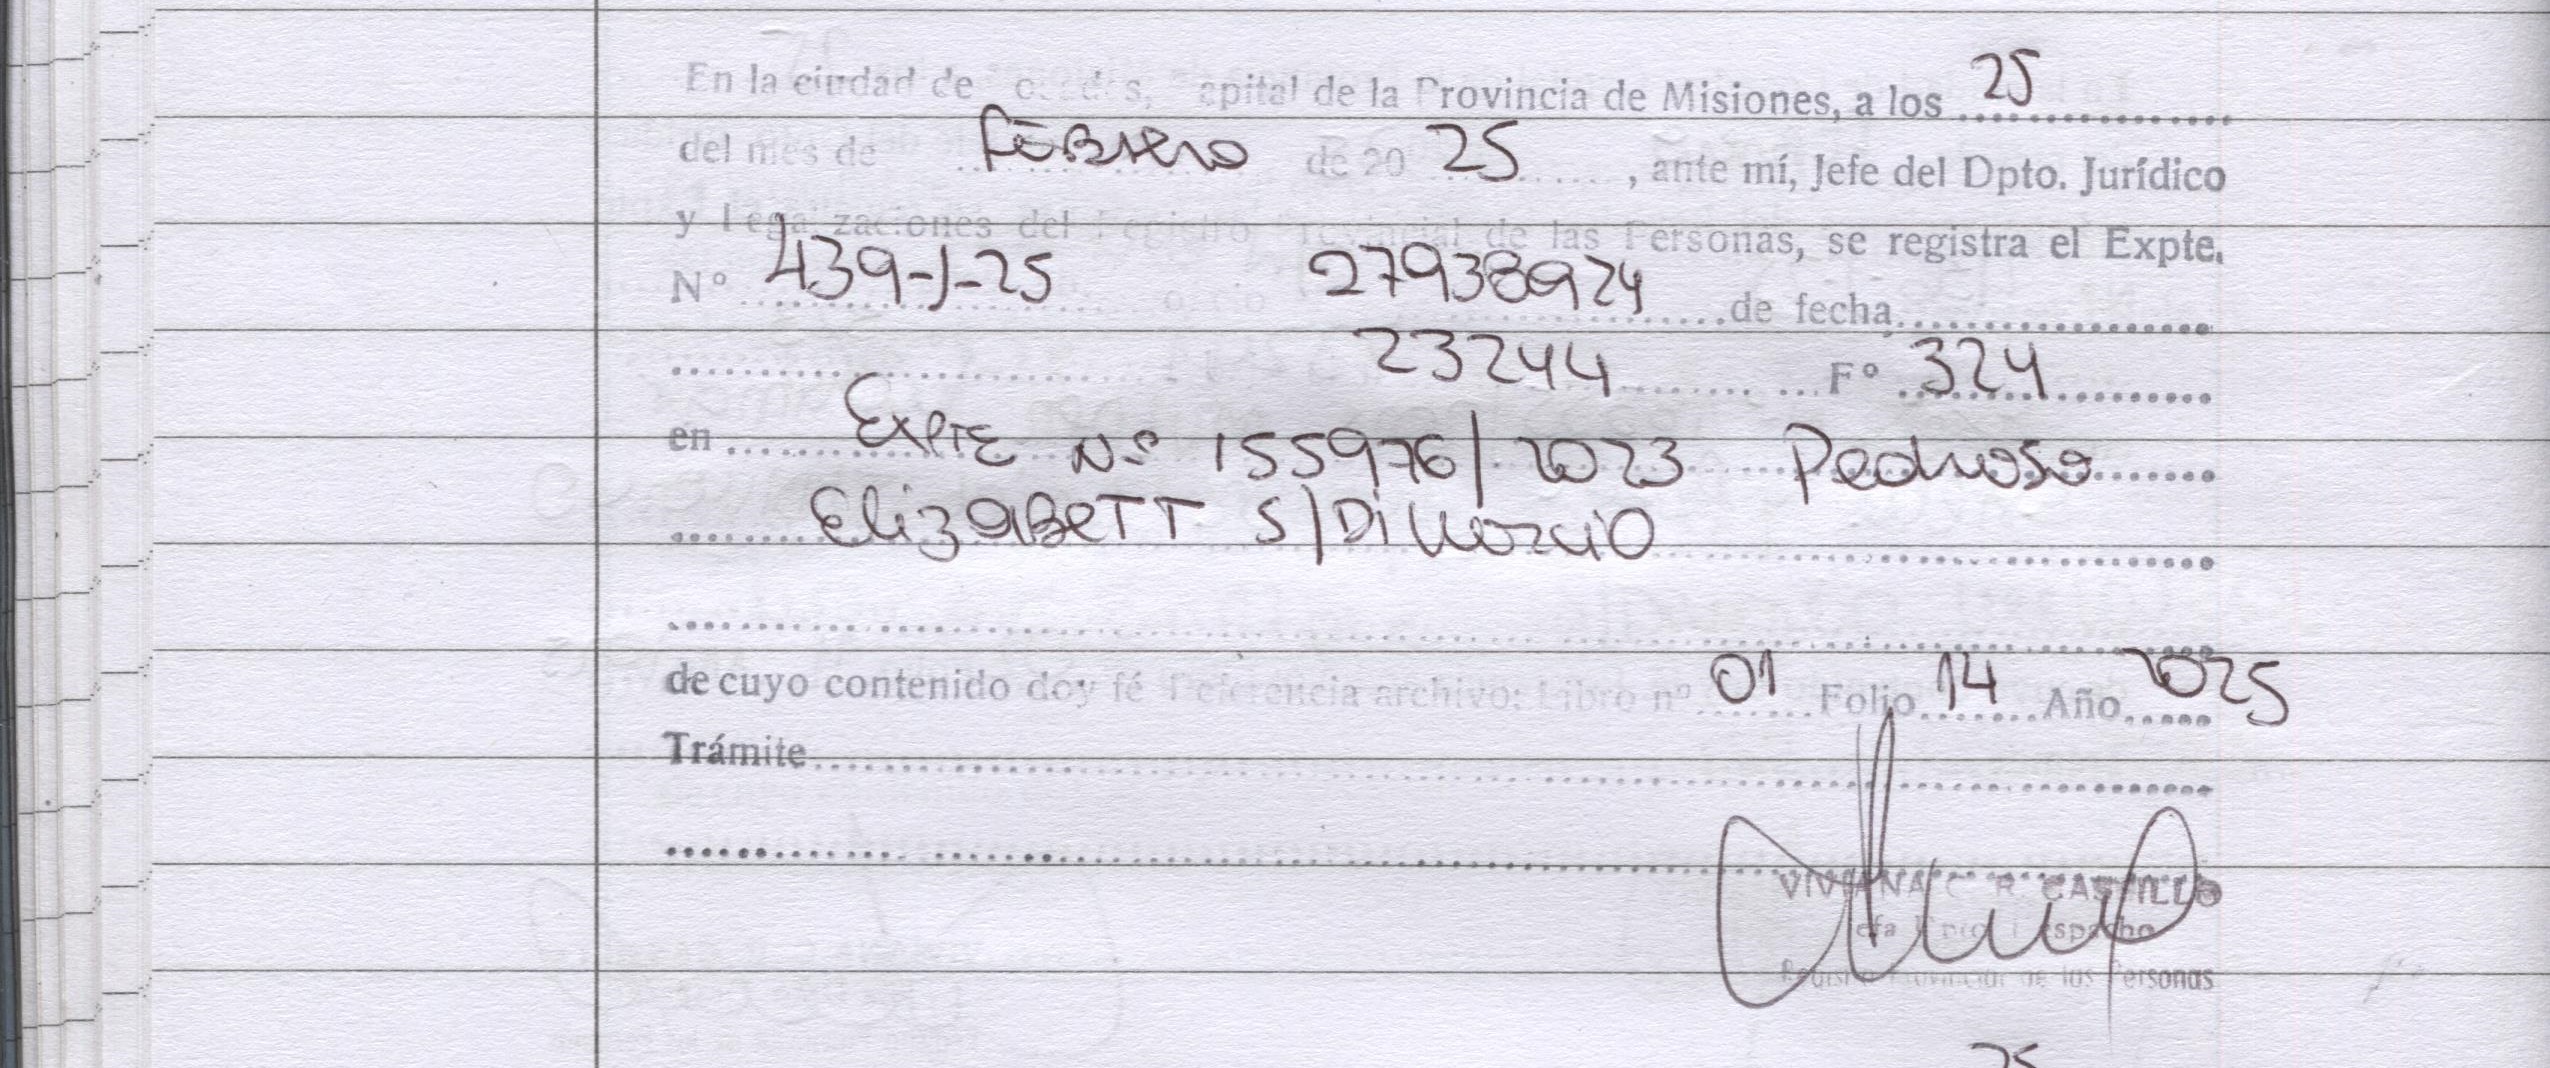 En la ciudad de de la Provincia de Misiones, a los 25
del mes de Febrero de 20 25, ante mí, Jefe del Dpto. Jurídico
y Legalizaciones del Registro Provincial de las Personas, se registra el Expte.
Nº 439-J-25 27938924 de fecha
23244 Fº 324
en Expte Nº 155976/2023 Pedroso
Elizabett S/Divorcio
de cuyo contenido doy fé Referencia archivo: Libro nº 01 Folio 14 Año 2025
Trámite
VIVIANA C. R. CASTILLO
Registro Provincial de las Personas
25